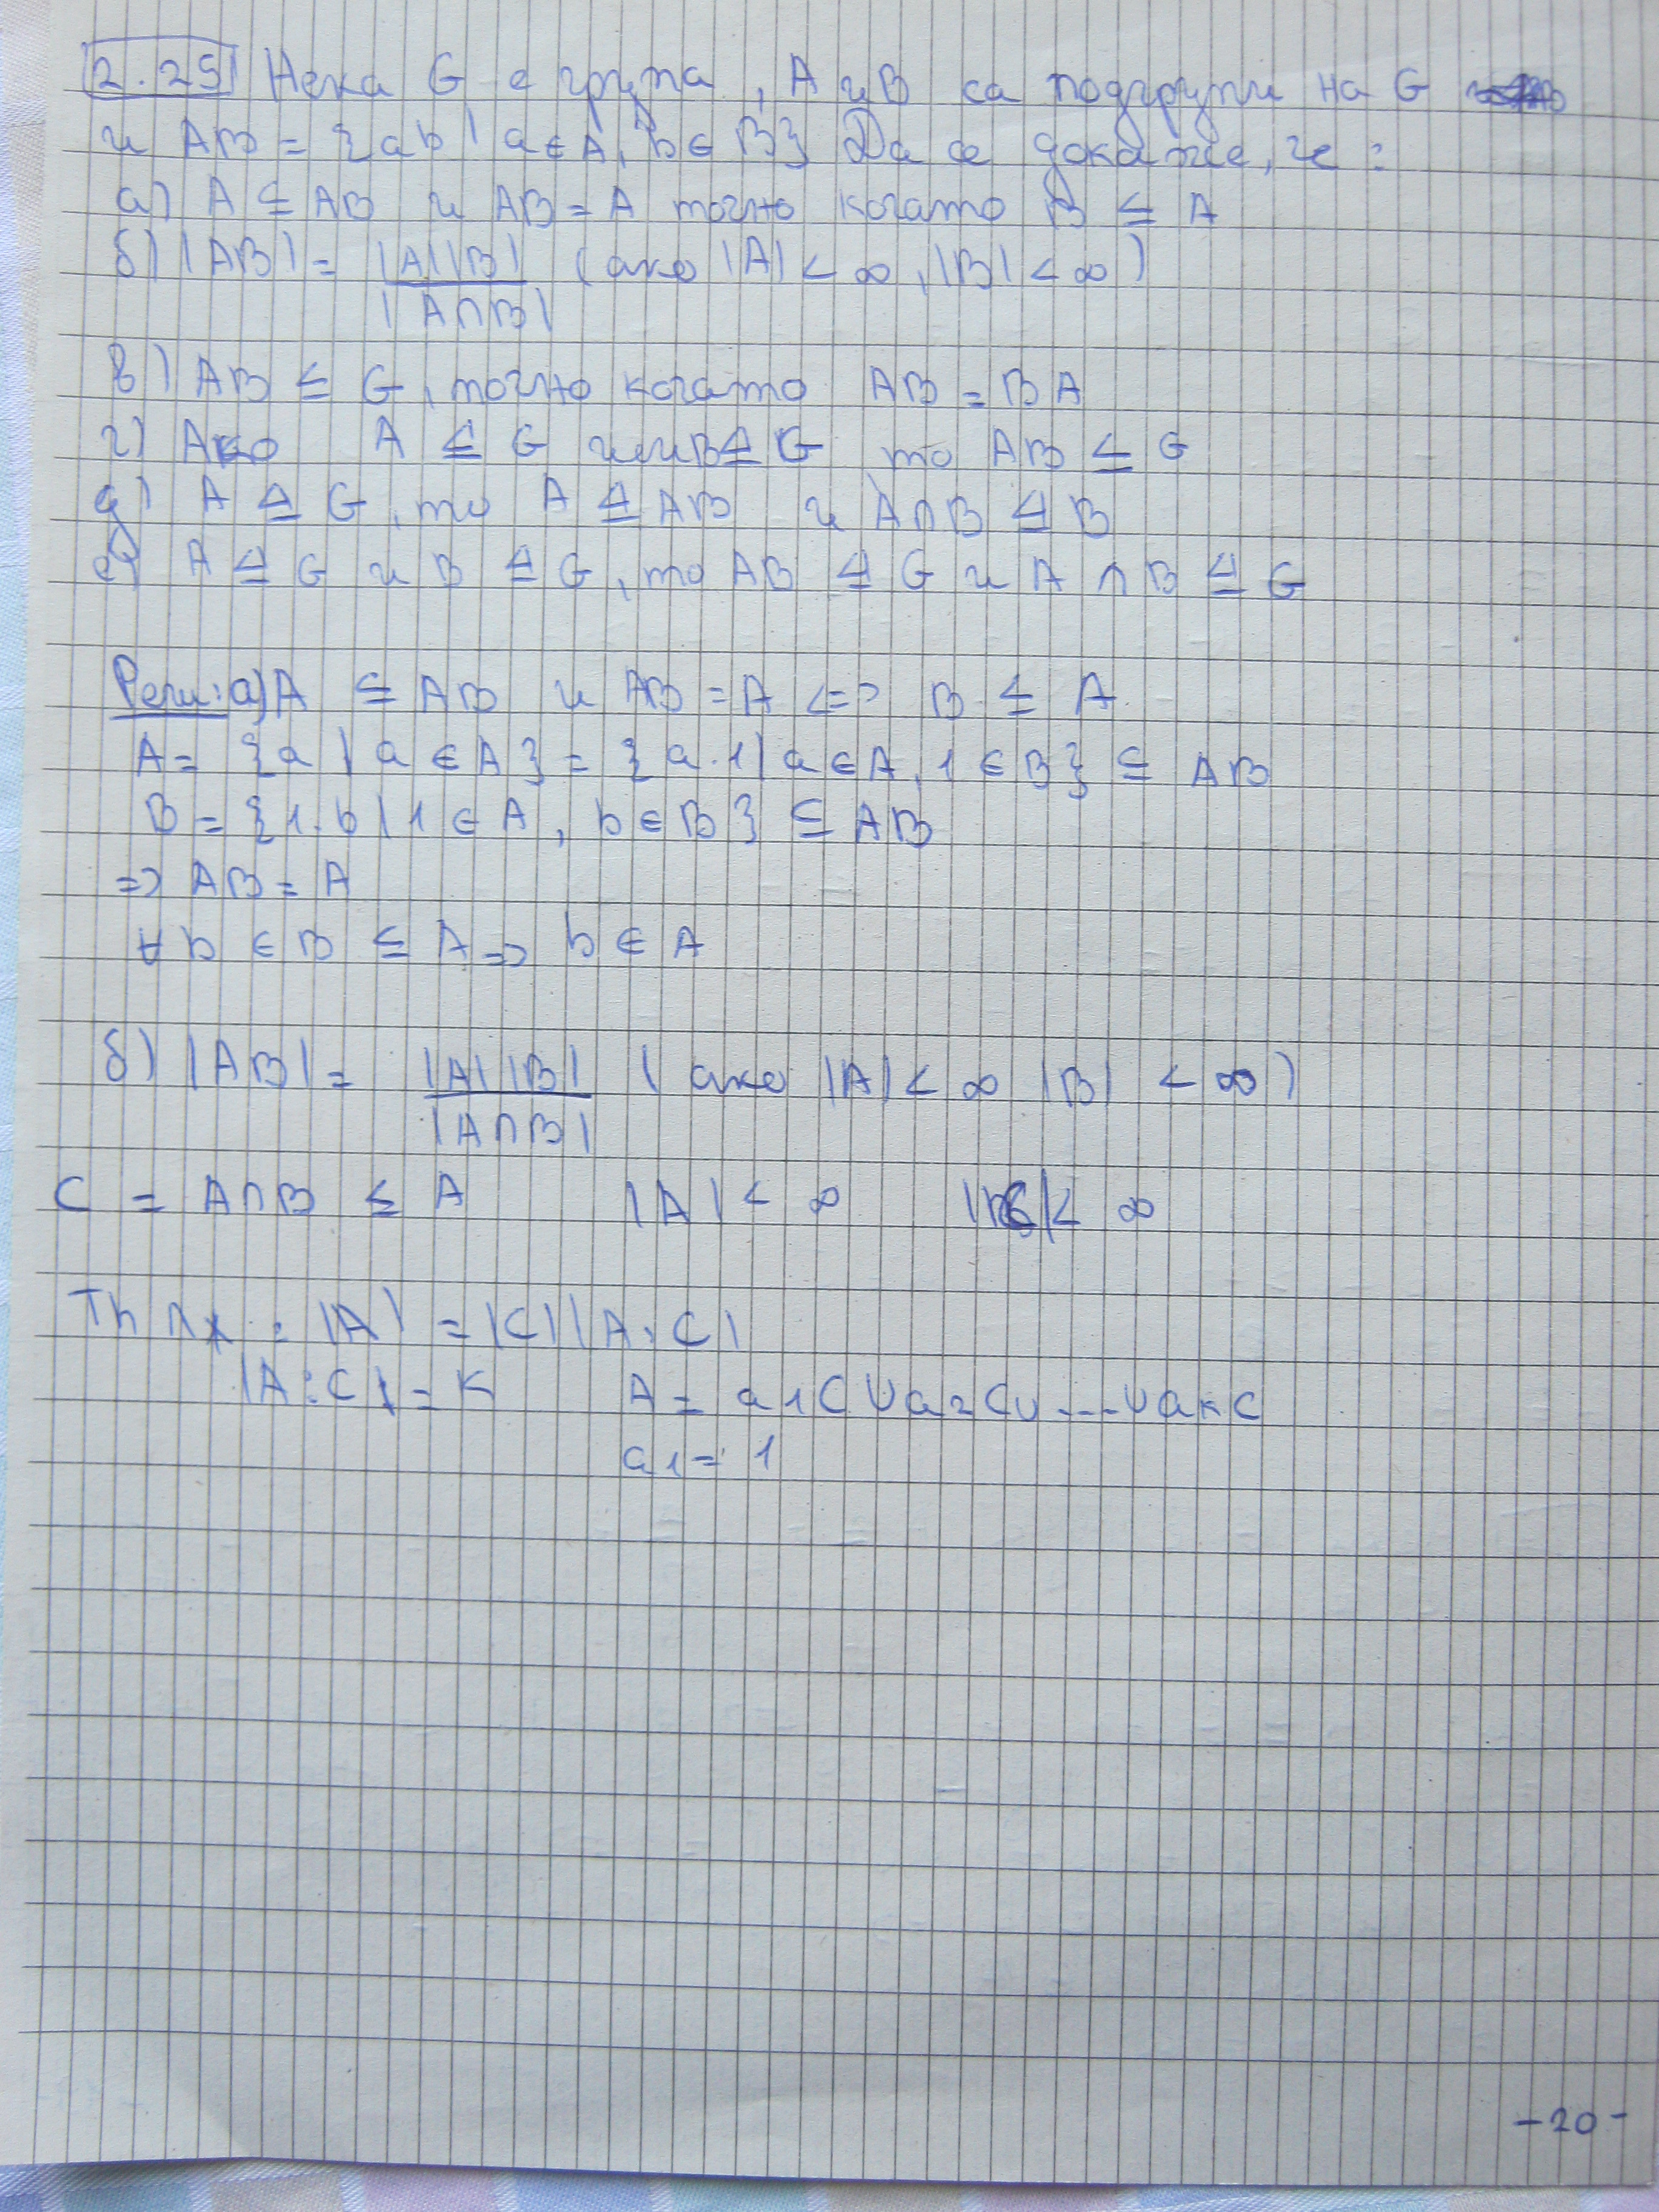 2.25 Нека G е група, A и B са подгрупи на G
и AB = {ab | a ∈ A, b ∈ B} Да се докаже, че:
а) A ⊆ AB и AB = A точно когато B ≤ A
б) |AB| = |A||B| / |A∩B| (ако |A| < ∞, |B| < ∞)
в) AB ≤ G, точно когато AB = BA
г) Ако A ⊴ G или B ⊴ G то AB ≤ G
д) A ⊴ G, то A ⊴ AB и A∩B ⊴ B
е) A ⊴ G и B ⊴ G, то AB ⊴ G и A ∩ B ⊴ G
Реш: а) A ⊆ AB и AB = A <=> B ≤ A
A = {a | a ∈ A} = {a.1 | a ∈ A, 1 ∈ B} ⊆ AB
B = {1.b | 1 ∈ A, b ∈ B} ⊆ AB
=> AB = A
∀ b ∈ B ≤ A => b ∈ A
б) |AB| = |A||B| / |A∩B| (ако |A| < ∞ |B| < ∞)
C = A∩B ≤ A |A| < ∞ |C| < ∞
Th : |A| = |C||A:C|
|A:C| = k A = a1C ∪ a2C ∪ ... ∪ akC
a1 = 1
-20-